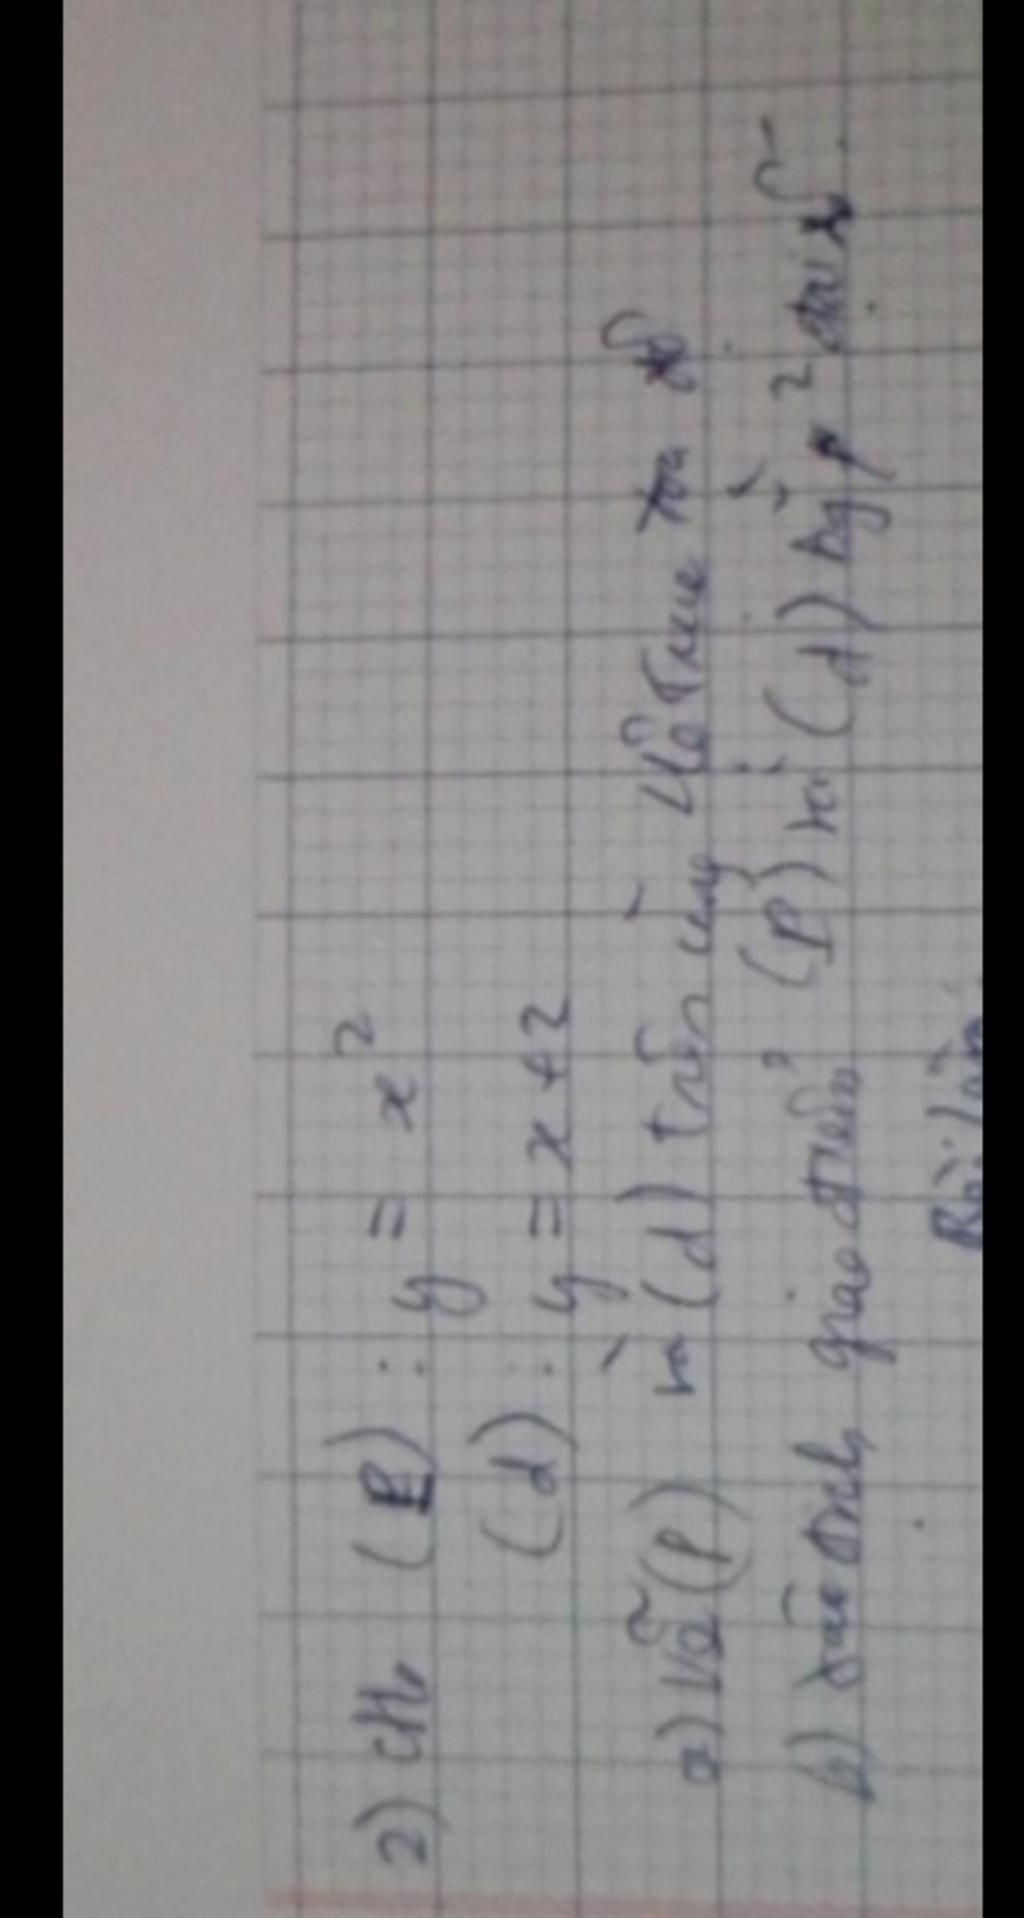 2) cho (P) : y = x²
(d) : y = x + 2
a) Vẽ (P) và (d) trên cùng hệ trục tọa độ
b) xác định giao điểm (P) với (d) bằng p² đại số
Bài làm